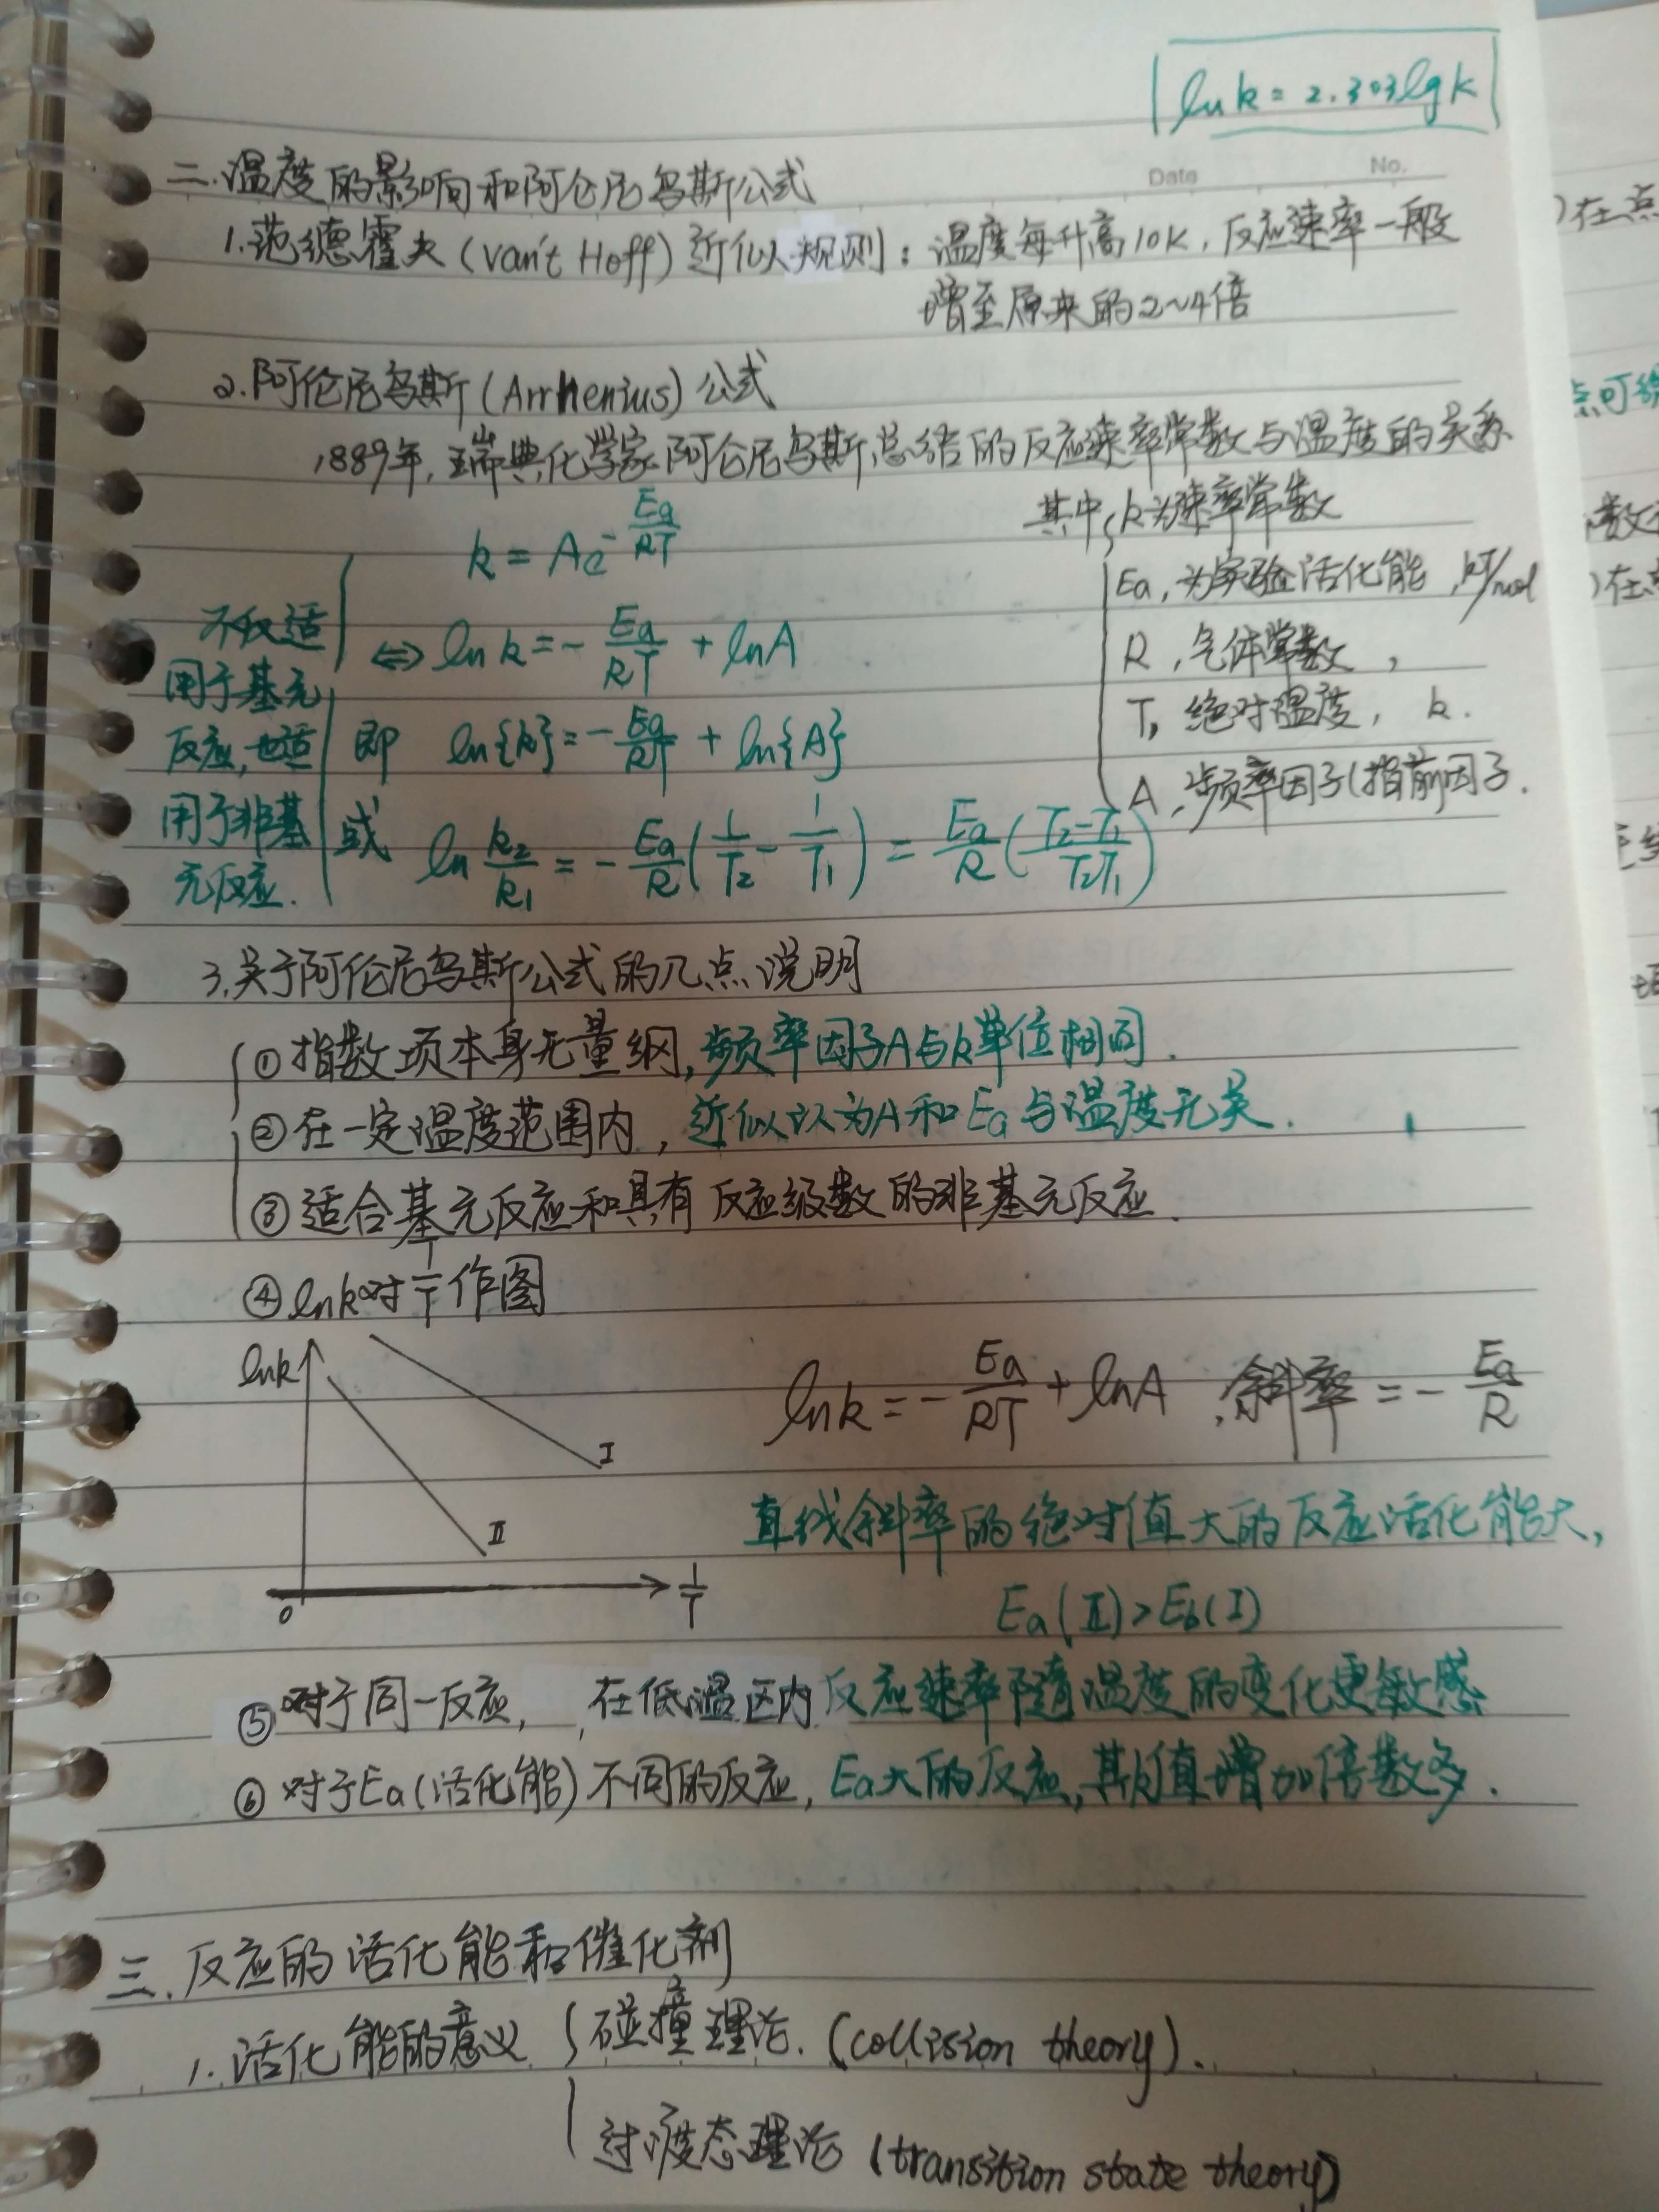 ln k = 2.303lg k
Date No.
二.温度的影响和阿仑尼乌斯公式
1.范德霍夫(van't Hoff)近似规则：温度每升高10K，反应速率一般
增至原来的2~4倍
2.阿伦尼乌斯(Arrhenius)公式
1889年，瑞典化学家阿仑尼乌斯总结的反应速率常数与温度的关系
k = Ae^{-Ea/RT}
其中，k为速率常数
Ea，为实验活化能，kJ/mol
R，气体常数，
T，绝对温度，k.
A，频率因子(指前因子.
不仅适
用于基元
反应，也适
用于非基
元反应.
⇔ ln k = - Ea/RT + lnA
即 ln{k} = - Ea/RT + ln{A}
或 ln k2/k1 = - Ea/R (1/T2 - 1/T1) = Ea/R (T2-T1/T2T1)
3.关于阿伦尼乌斯公式的几点说明
①指数项本身无量纲，频率因子A与k单位相同.
②在一定温度范围内，近似认为A和Ea与温度无关.
③适合基元反应和具有反应级数的非基元反应.
④lnk对1/T作图
lnk
I
II
0
1/T
lnk = - Ea/RT + lnA，斜率 = - Ea/R
直线斜率的绝对值大的反应活化能大，
Ea(II)>Eb(I)
⑤对于同一反应，在低温区内反应速率随温度的变化更敏感
⑥对于Ea(活化能)不同的反应，Ea大的反应，其k值增加倍数多.
三.反应的活化能和催化剂
1.活化能的意义 碰撞理论.(collision theory).
过渡态理论(transition state theory)